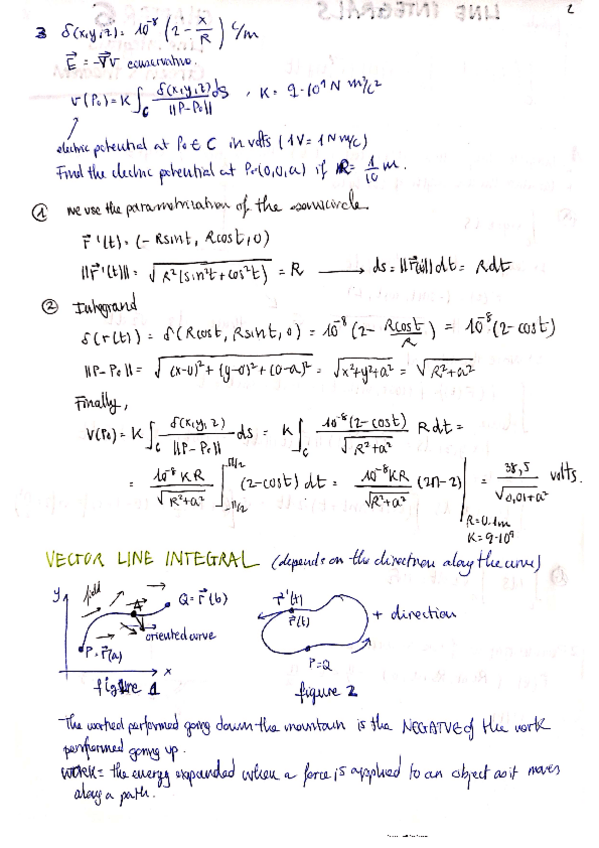 2
3 δ(x,y,z) = 10⁻⁸ (2 - x/R) C/m
E⃗ = -∇⃗V conservative.
V(P₀) = K ∫_C δ(x,y,z)ds / ||P-P₀|| , K = 9·10⁹ N m²/C²
electric potential at P₀ ∈ C in volts (1V = 1 Nm/C)
Find the electric potential at P₀ (0,0,a) if R = 1/10 m.
① we use the parametrization of the semicircle
r⃗'(t) = (-Rsint, Rcost, 0)
||r⃗'(t)|| = √(R²(sin²t + cos²t)) = R ⟶ ds = ||r⃗'(t)||dt = Rdt
② Integrand
δ(r(t)) = δ(Rcost, Rsint, 0) = 10⁻⁸ (2 - Rcost/R) = 10⁻⁸ (2-cost)
||P-P₀|| = √((x-0)² + (y-0)² + (0-a)²) = √(x²+y²+a²) = √(R²+a²)
Finally,
V(P₀) = K ∫_C δ(x,y,z)/||P-P₀|| ds = K ∫_C 10⁻⁸(2-cost)/√(R²+a²) Rdt =
= 10⁻⁸KR/√(R²+a²) ∫_{-π/2}^{π/2} (2-cost) dt = 10⁻⁸KR/√(R²+a²) (2π-2) | = 38,5/√(0,01+a²) volts.
R=0.1m
K=9·10⁹
VECTOR LINE INTEGRAL (depends on the direction along the curve)
y field A Q = r⃗(b)
oriented curve
P = r⃗(a)
x
figure 1
r⃗'(t)
r⃗(t)
+ direction
P=Q
figure 2
The worked performed going down the mountain is the NEGATVE of the work
performed going up.
WORK = the energy expanded when a force is applied to an object as it moves
along a path.